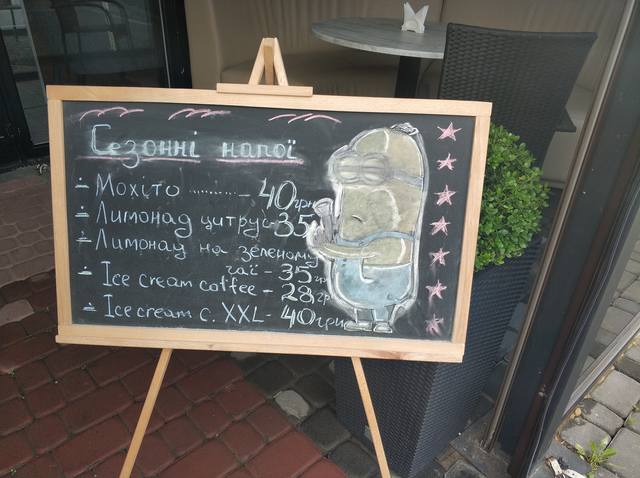 Сезонні напої
- Мохіто ........... - 40 грн
- Лимонад цитрус - 35
- Лимонад на зеленому
чаї - 35 грн
- Ice cream coffee - 28 гр
- Ice cream c. XXL - 40 грн